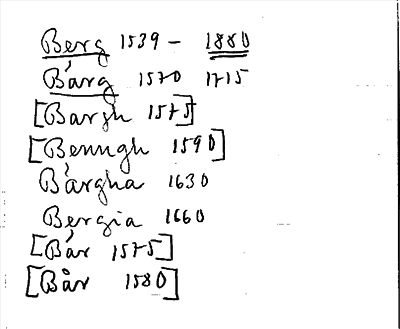 Berg 1539 - 1880
Bárg 1570 1715
[Bargh 1575]
[Benngh 1590]
Bårgha 1630
Bergia 1660
[Bár 1575]
[Bår 1580]